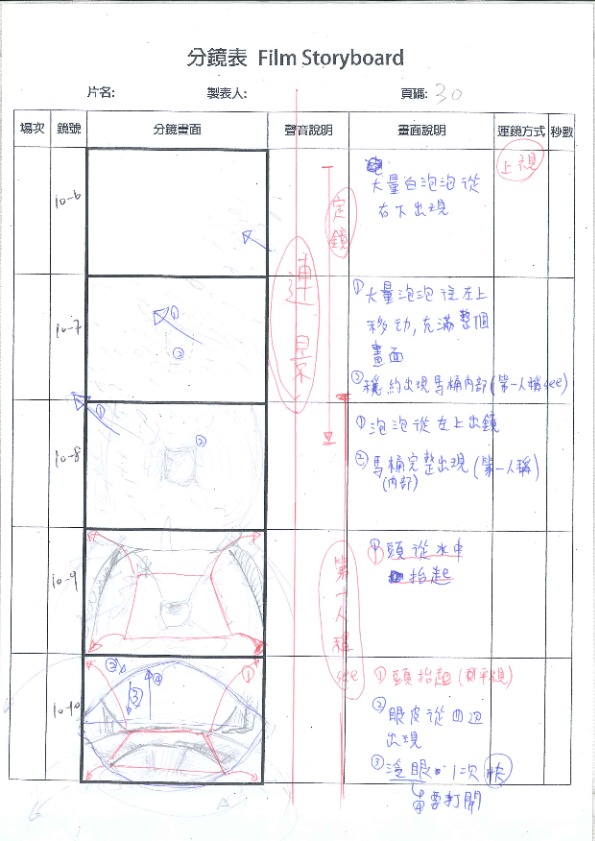 分鏡表 Film Storyboard
片名:
製表人:
頁碼: 30
場次 鏡號 分鏡畫面 聲音說明 畫面說明 運鏡方式 秒數
10-6
定鏡
大量白泡泡從
右下出現
上視
連景
10-7
①
②
①大量泡泡往左上
移动,充滿整個
畫面
②穩約出現馬桶內部(第一人稱see)
10-8
①
②
①泡泡從左上出鏡
②馬桶完整出現(第一人稱)
(內部)
10-9
第一人稱
see
頭從水中
抬起
10-10
②
③
④
①
①頭抬起(頭平視)
②眼皮從四边
出現
③眨眼 1次 快
需要打開